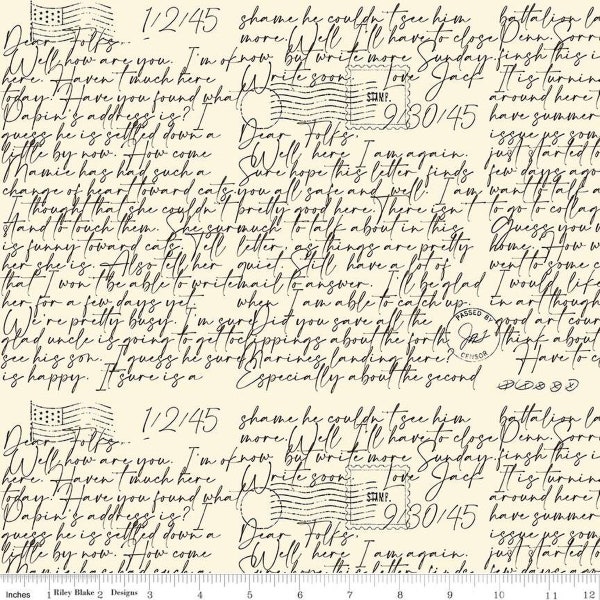 1/2/45
Dear Folks..
Well, how are you. I'm ok
here. Haven't much here
today. Have you found wha
Papin's address is? I
guess he is settled down a
little by now. How come
Mamie has had such a
change of heart toward cats.
I thought that she couldn't
stand to touch them. She sur
is funny toward cats. Tell
her she is. Also tell her
that I won't be able to write
her for a few days yet.
We're pretty busy. I'm sure
glad uncle is going to get to
see his son. I guess he sure
is happy. It sure is a
shame he couldn't see him
more. Well I'll have to close
now but write more Sunday.
Write soon. Love Jack
STAMP.
9/30/45
Dear Folks.
Well, here I am again.
Sure hope this letter finds
you all safe and well. I am
pretty good here. There isn't
much to talk about in this
letter, as things are pretty
quiet. Still have a lot of
mail to answer. I'll be glad
when I am able to catch up.
Did you save all the
clippings about the forth
Marines landing here?
Especially about the second
PASSED BY
CENSOR
battalion la
Penn. Sorr
finsh this i
It is turnin
around here t
have summer
issue us som
just started t
few days ago
want to talk a
to go to collag
Guess you w
home. How w
went to some c
I would life
in art though
good art cour
think about
Have to c
1/2/45
Dear Folks..
Well, how are you. I'm ok
here. Haven't much here
today. Have you found wha
Papin's address is? I
guess he is settled down a
little by now. How come
Mamie has had such a
shame he couldn't see him
more. Well I'll have to close
now but write more Sunday.
Write soon. Love Jack
STAMP.
9/30/45
Dear Folks.
Well, here I am again.
Sure hope this letter finds
battalion la
Penn. Sorr
finsh this i
It is turnin
around here t
have summer
issue us som
just started t
few days ago
Inches 1 Riley Blake 2 Designs 3 4 5 6 7 8 9 10 11 12